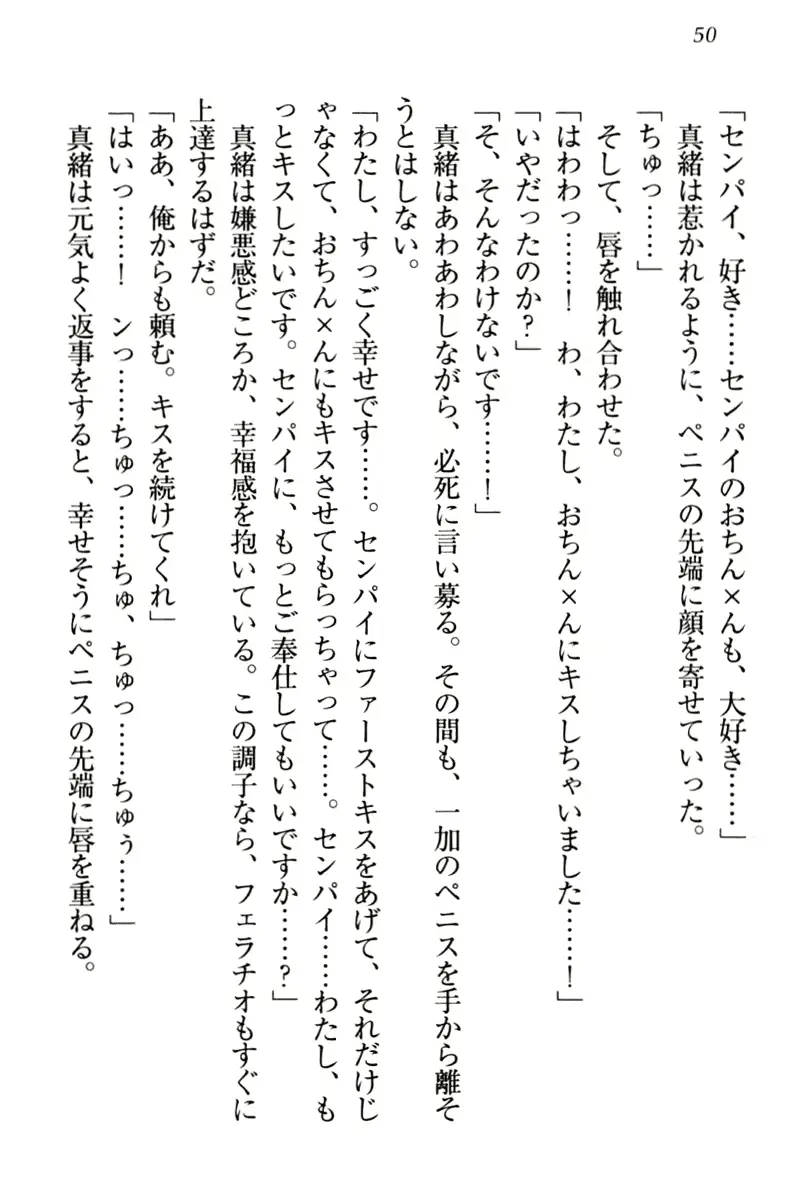 50
「センパイ、好き……センパイのおちん×んも、大好き……」
真緒は惹かれるように、ペニスの先端に顔を寄せていった。
「ちゅっ……」
そして、唇を触れ合わせた。
「はわわっ……！　わ、わたし、おちん×んにキスしちゃいました……！」
「いやだったのか？」
「そ、そんなわけないです……！」
真緒はあわあわしながら、必死に言い募る。その間も、一加のペニスを手から離そ
うとはしない。
「わたし、すっごく幸せです……。センパイにファーストキスをあげて、それだけじ
ゃなくて、おちん×んにもキスさせてもらっちゃって……。センパイ……わたし、も
っとキスしたいです。センパイに、もっとご奉仕してもいいですか……？」
真緒は嫌悪感どころか、幸福感を抱いている。この調子なら、フェラチオもすぐに
上達するはずだ。
「ああ、俺からも頼む。キスを続けてくれ」
「はいっ……！　ンっ……ちゅっ……ちゅ、ちゅっ……ちゅぅ……」
真緒は元気よく返事をすると、幸せそうにペニスの先端に唇を重ねる。